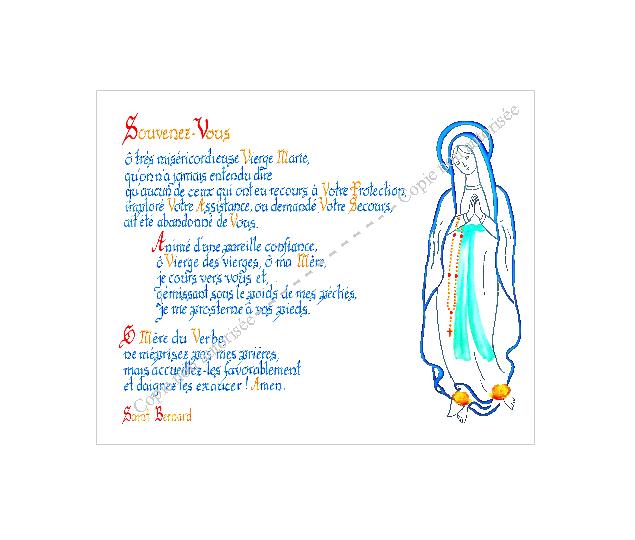 Souvenez-Vous
ô très miséricordieuse Vierge Marie,
qu'on n'a jamais entendu dire
qu'aucun de ceux qui ont eu recours à Votre Protection,
imploré Votre Assistance, ou demandé Votre Secours,
ait été abandonné de Vous.
Animé d'une pareille confiance,
ô Vierge des vierges, ô ma Mère,
je cours vers vous et,
gémissant sous le poids de mes péchés,
je me prosterne à vos pieds.
O Mère du Verbe,
ne méprisez pas mes prières,
mais accueillez-les favorablement
et daignez les exaucer ! Amen.
Saint Bernard
Copie non autorisée - - - - - - - - - - Copie non autorisée